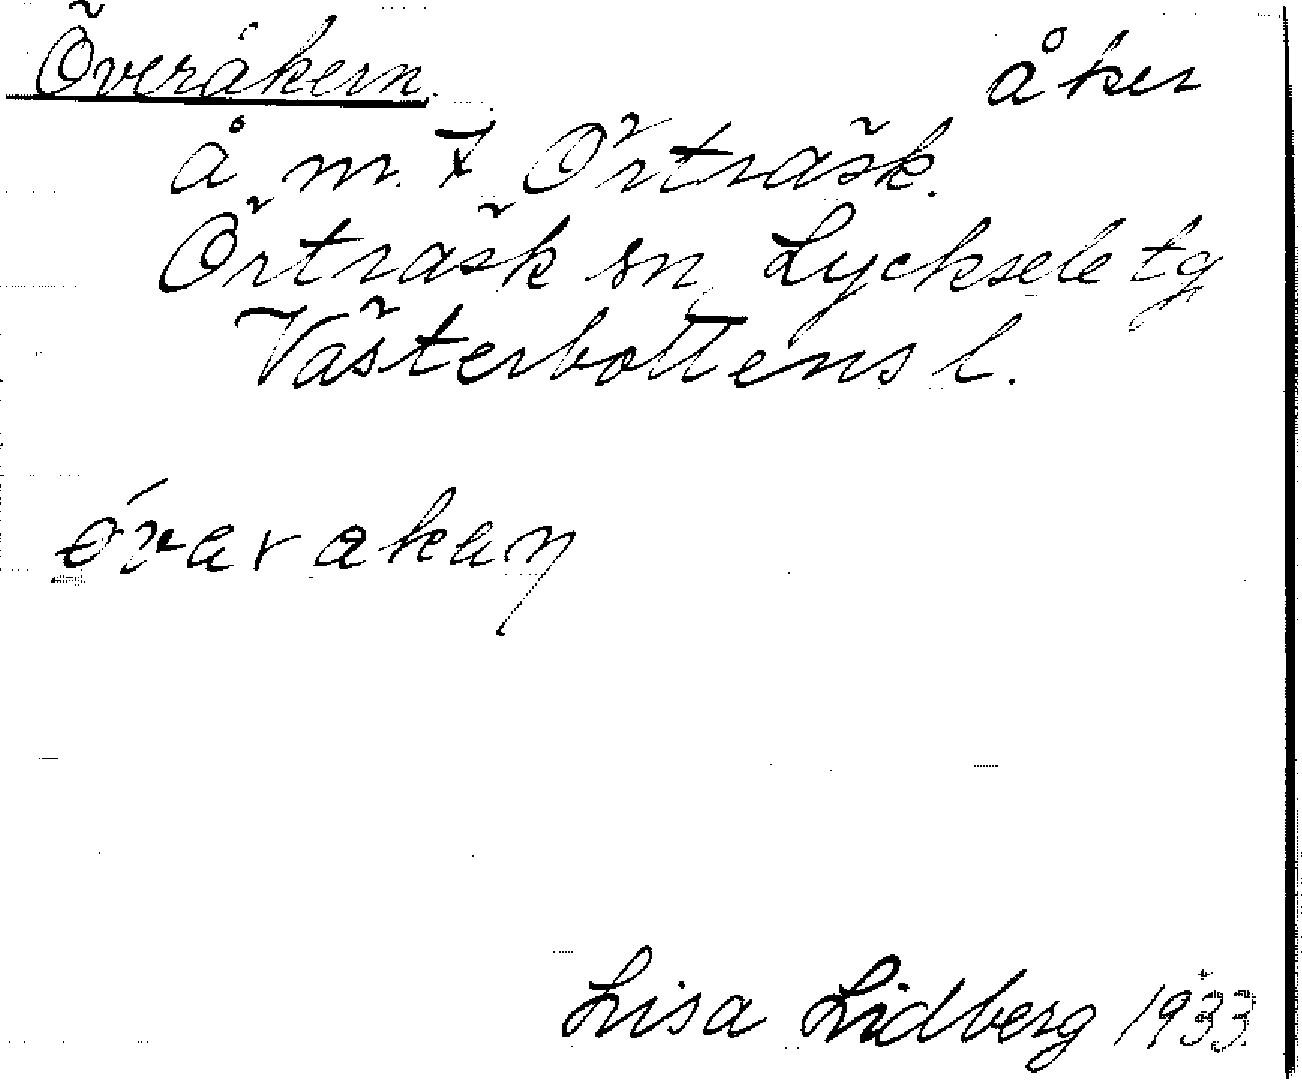 Överåkern. åker
å m. 7 Örträsk.
Örträsk sn, Lycksele tg
Västerbottens l.
óvarakaŋ
Lisa Lidberg 1933.